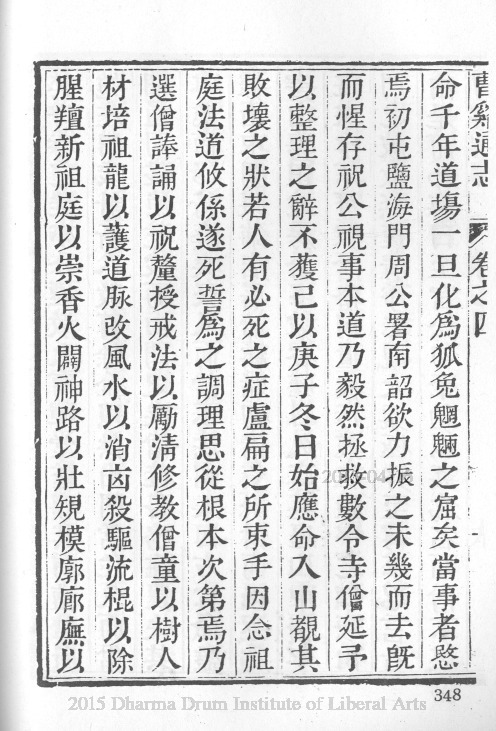 曹谿通志 卷之四
命千年道場一旦化為狐兔魍魎之窟矣當事者愍
焉初屯鹽海門周公署南韶欲力振之未幾而去旣
而惺存祝公視事本道乃毅然拯救數令寺僧延予
以整理之辭不獲已以庚子冬日始應命入山覩其
敗壞之狀若人有必死之症盧扁之所束手因念祖
庭法道攸係遂死誓為之調理思從根本次第焉乃
選僧諱誦以祝釐授戒法以勵清修教僧童以樹人
材培祖龍以護道脉改風水以消凶殺驅流棍以除
腥羶新祖庭以崇香火闢神路以壯規模廓廊廡以
348
2015 Dharma Drum Institute of Liberal Arts